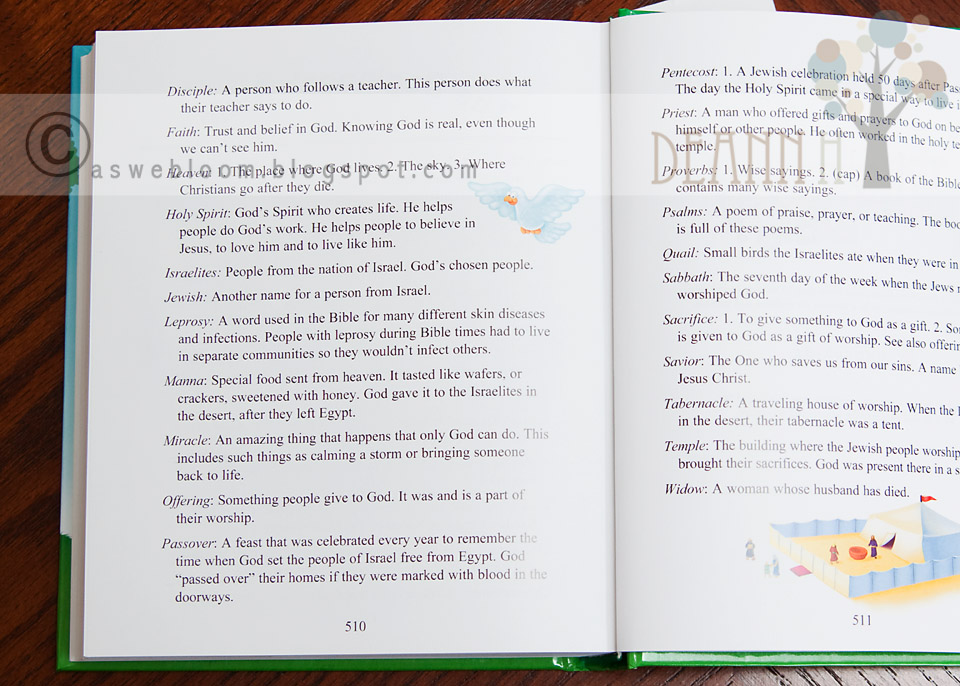 Disciple: A person who follows a teacher. This person does what
their teacher says to do.
Faith: Trust and belief in God. Knowing God is real, even though
we can't see him.
Heaven: 1. The place where God lives. 2. The sky. 3. Where
Christians go after they die.
Holy Spirit: God's Spirit who creates life. He helps
people do God's work. He helps people to believe in
Jesus, to love him and to live like him.
Israelites: People from the nation of Israel. God's chosen people.
Jewish: Another name for a person from Israel.
Leprosy: A word used in the Bible for many different skin diseases
and infections. People with leprosy during Bible times had to live
in separate communities so they wouldn't infect others.
Manna: Special food sent from heaven. It tasted like wafers, or
crackers, sweetened with honey. God gave it to the Israelites in
the desert, after they left Egypt.
Miracle: An amazing thing that happens that only God can do. This
includes such things as calming a storm or bringing someone
back to life.
Offering: Something people give to God. It was and is a part of
their worship.
Passover: A feast that was celebrated every year to remember the
time when God set the people of Israel free from Egypt. God
"passed over" their homes if they were marked with blood in the
doorways.
510
Pentecost: 1. A Jewish celebration held 50 days after
The day the Holy Spirit came in a special way to live
Priest: A man who offered gifts and prayers to God on
himself or other people. He often worked in the holy
temple.
Proverbs: 1. Wise sayings. 2. (cap) A book of the Bible
contains many wise sayings.
Psalms: A poem of praise, prayer, or teaching. The
is full of these poems.
Quail: Small birds the Israelites ate when they were in
Sabbath: The seventh day of the week when the Jews
worshiped God.
Sacrifice: 1. To give something to God as a gift. 2.
is given to God as a gift of worship. See also
Savior: The One who saves us from our sins. A name
Jesus Christ.
Tabernacle: A traveling house of worship. When the
in the desert, their tabernacle was a tent.
Temple: The building where the Jewish people
brought their sacrifices. God was present there in a
Widow: A woman whose husband has died.
511
© aswebloom.blogspot.com
DEANNA